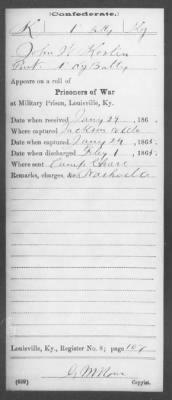 (Confederate.)
K 1 Batty Ky
John W
Pvt 1 Ky Batty
Appears on a roll of
Prisoners of War
at Military Prison, Louisville, Ky.
Date when received Jany 29, 186
Where captured Jackson
Date when captured Jany 24, 1865
Date when discharged Feby 1, 1865
Where sent Camp Chase
Remarks, charges, &c Nashville
Louisville, Ky., Register No. 8; page 107
(639) Copyist.